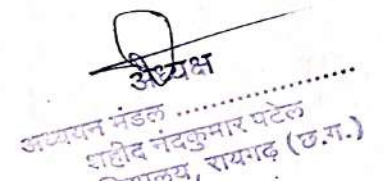 अध्यक्ष
अध्ययन मंडल ..................
शहीद नंदकुमार पटेल
रायगढ़ (छ.ग.)